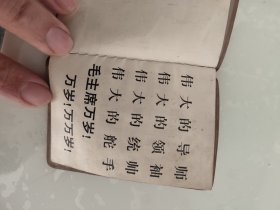 伟大的导师
伟大的领袖
伟大的统帅
伟大的舵手
毛主席万岁！
万岁！万万岁！